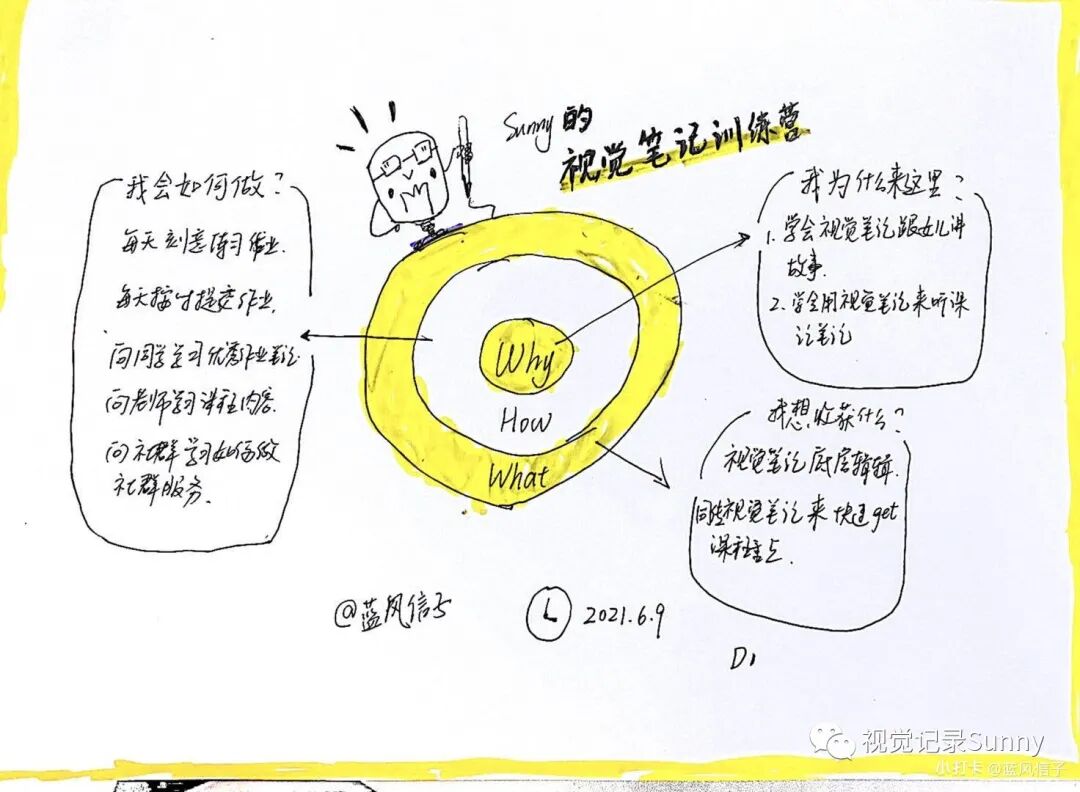 Sunny的
视觉笔记训练营
我会如何做?
每天刻意练习作业.
每天按时提交作业,
向同学学习优秀作业笔记
向老师学习课程内容.
向社群学习如何做
社群服务.
我为什么来这里?
1. 学会视觉笔记跟女儿讲
故事.
2. 学会用视觉笔记来听课
记笔记
Why
How
What
我想收获什么?
视觉笔记底层逻辑.
视觉笔记来快速get
课程重点.
@蓝风信子
2021.6.9
D1
视觉记录Sunny
小打卡 @蓝风信子